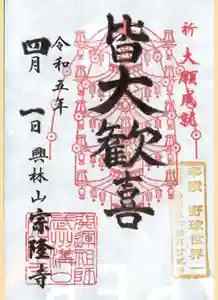 祈 大願成就
皆大歓喜
令和五年
四月一日
興林山 宗隆寺
奉祝 野球世界一